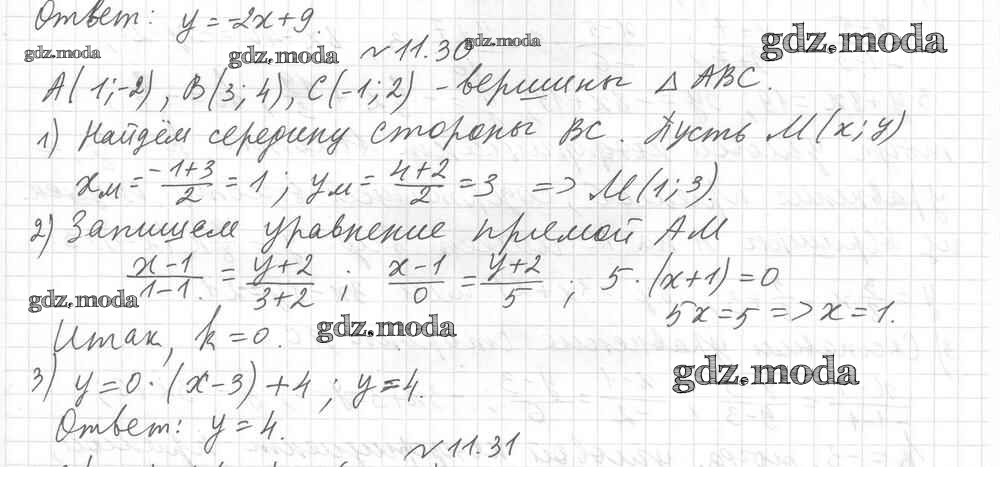 Ответ: y = -2x + 9.
gdz.moda gdz.moda № 11.30 gdz.moda gdz.moda
A(1; -2), B(3; 4), C(-1; 2) - вершины △ ABC.
1) Найдём середину стороны BC. Пусть M(x; y)
x_M = (-1+3)/2 = 1; y_M = (4+2)/2 = 3 => M(1; 3).
2) Запишем уравнение прямой AM
(x-1)/(1-1) = (y+2)/(3+2); (x-1)/0 = (y+2)/5; 5·(x+1) = 0
gdz.moda 5x = 5 => x = 1.
Итак, k = 0. gdz.moda
3) y = 0·(x-3) + 4; y = 4. gdz.moda
Ответ: y = 4.
№ 11.31